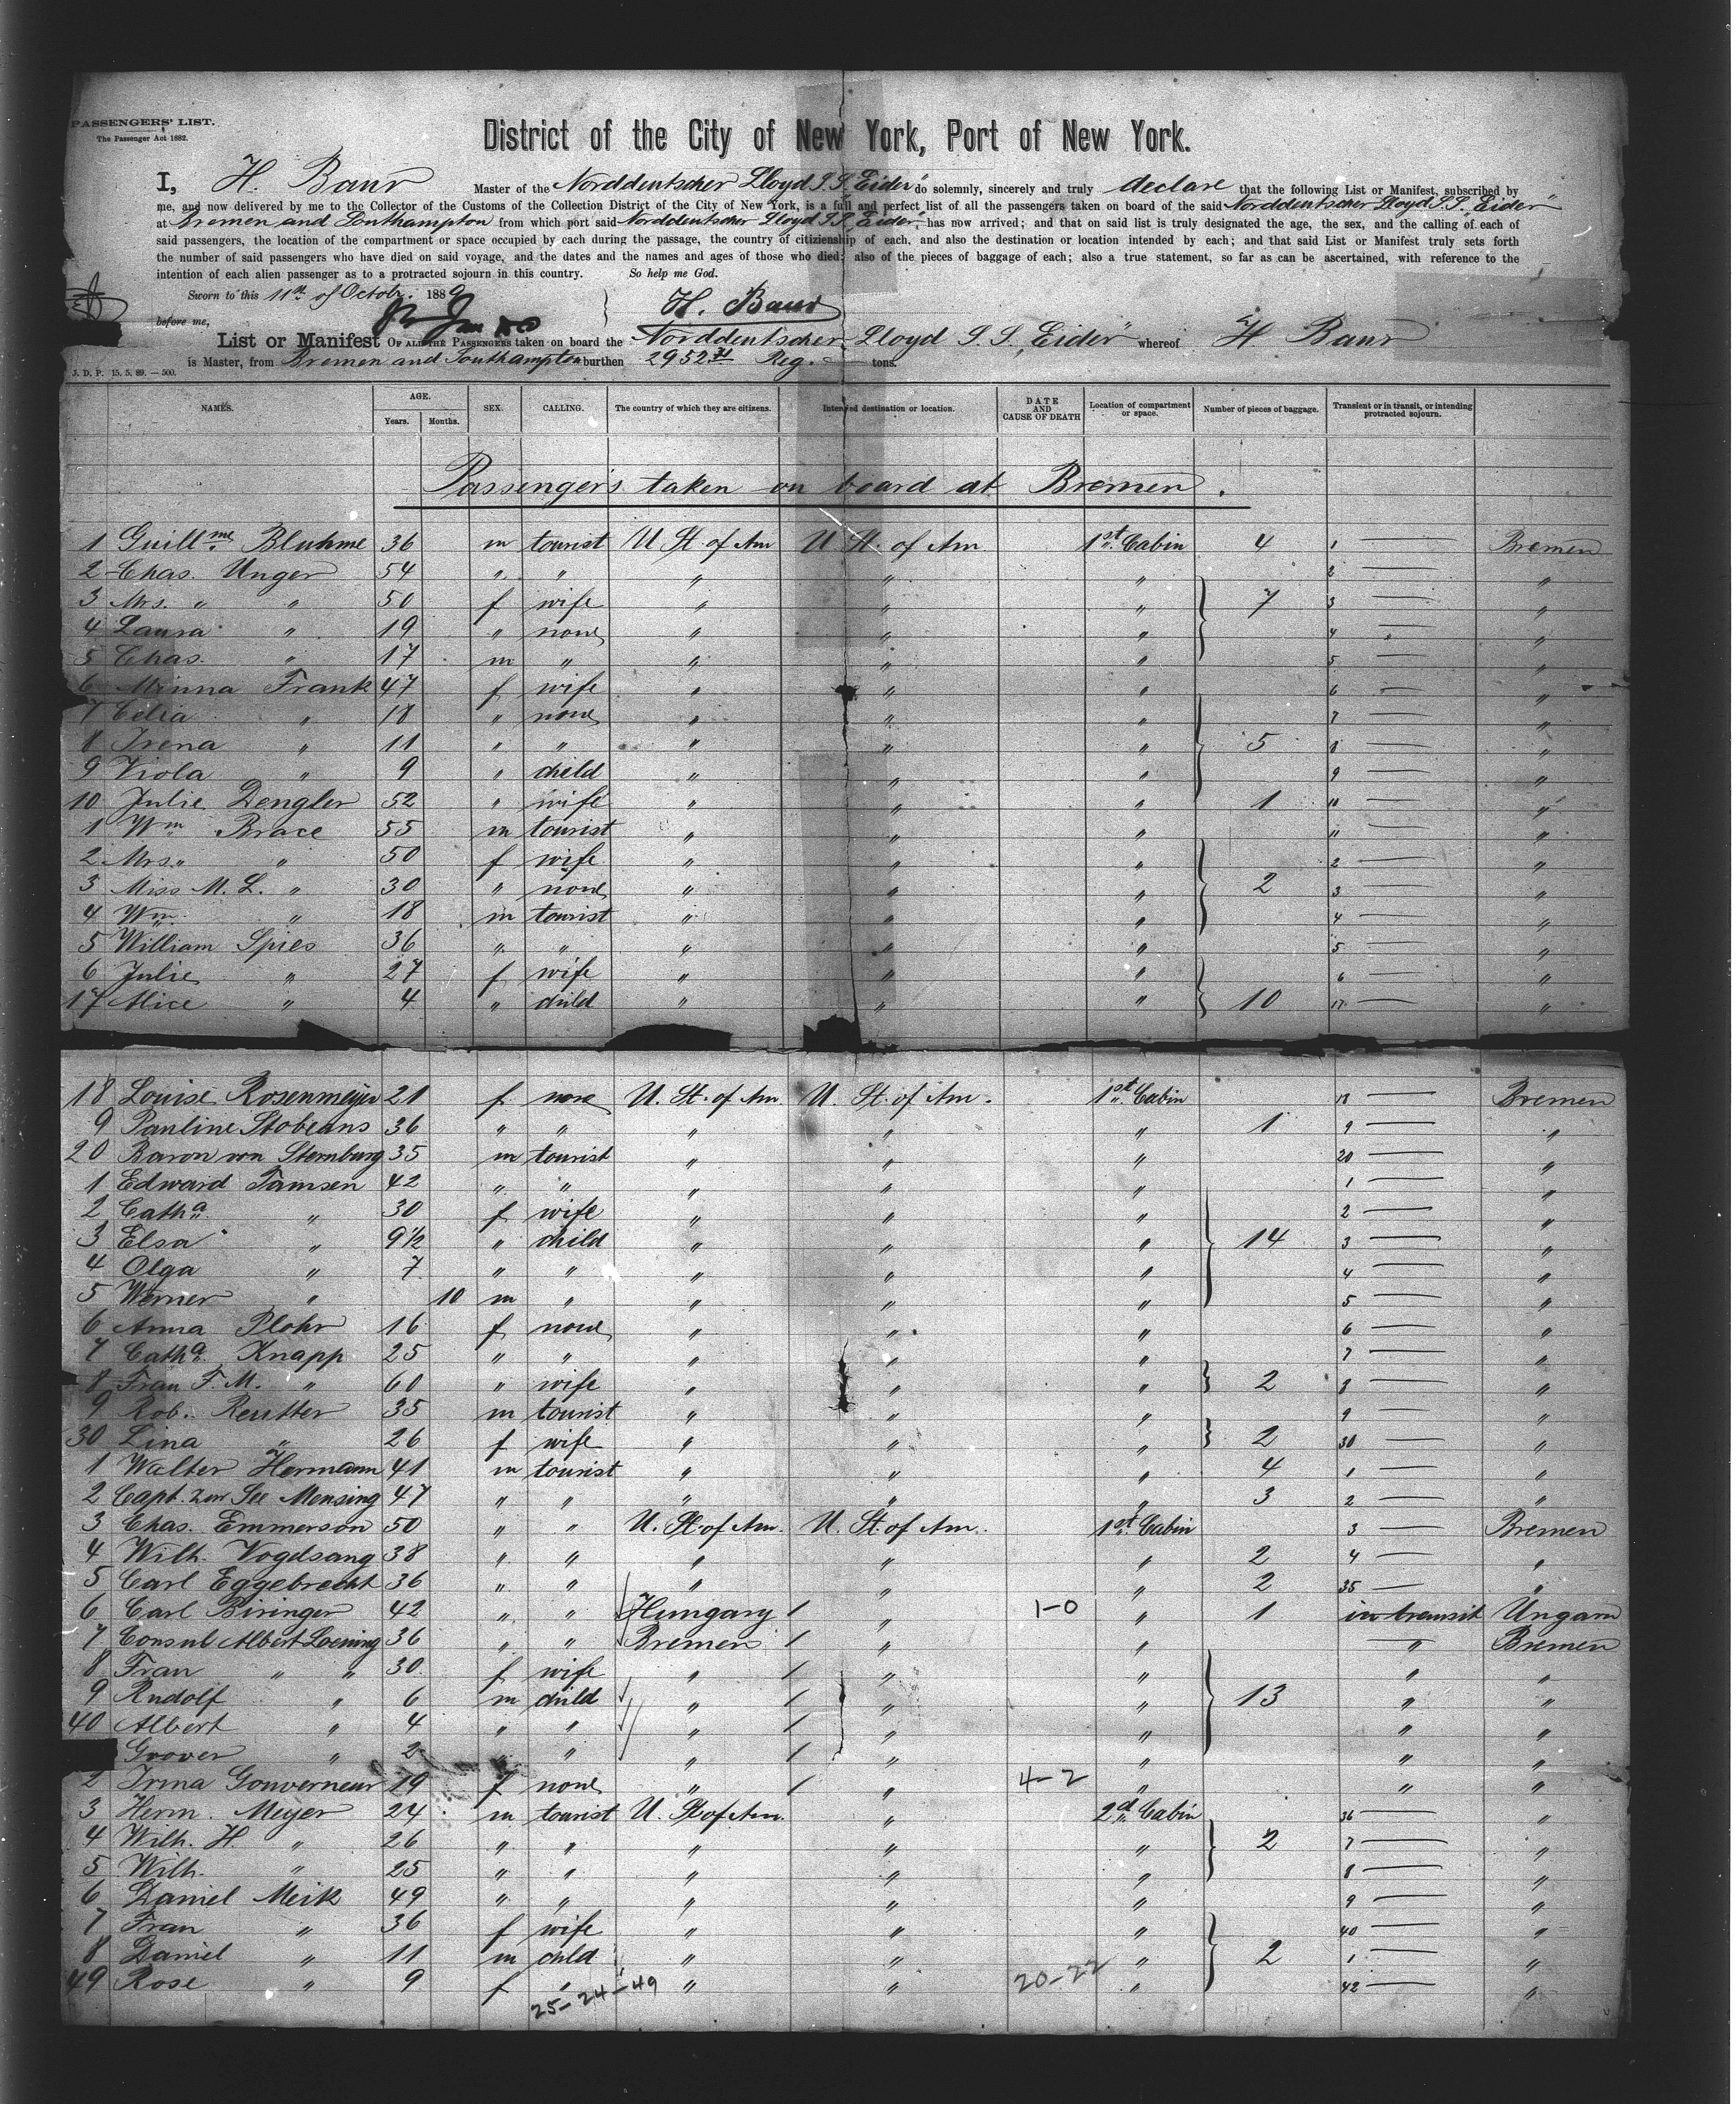 PASSENGERS' LIST.
The Passenger Act 1882.
District of the City of New York, Port of New York.
I, H. Baur Master of the Norddeutscher Lloyd S.S. "Eider" do solemnly, sincerely and truly declare that the following List or Manifest, subscribed by
me, and now delivered by me to the Collector of the Customs of the Collection District of the City of New York, is a full and perfect list of all the passengers taken on board of the said Norddeutscher Lloyd S.S. "Eider"
at Bremen and Southampton from which port said Norddeutscher Lloyd S.S. "Eider" has now arrived; and that on said list is truly designated the age, the sex, and the calling of each of
said passengers, the location of the compartment or space occupied by each during the passage, the country of citizienship of each, and also the destination or location intended by each; and that said List or Manifest truly sets forth
the number of said passengers who have died on said voyage, and the dates and the names and ages of those who died; also of the pieces of baggage of each; also a true statement, so far as can be ascertained, with reference to the
intention of each alien passenger as to a protracted sojourn in this country. So help me God.
Sworn to this 11th of Octobr. 1889
before me, H. Baur
List or Manifest OF ALL THE PASSENGERS taken on board the Norddeutscher Lloyd S.S. "Eider" whereof H. Baur
is Master, from Bremen and Southampton burthen 2952 Reg. tons.
J. D. P. 15. 5. 89. — 500.
NAMES. AGE. Years. Months. SEX. CALLING. The country of which they are citizens. Intended destination or location. DATE AND CAUSE OF DEATH Location of compartment or space. Number of pieces of baggage. Transient or in transit, or intending protracted sojourn.
Passengers taken on board at Bremen.
1 Guillme Bluhme 36 m tourist U. St. of Am U. St. of Am 1st Cabin 4 1 — Bremen
2 Chas. Unger 54 " " " " " 2 — "
3 Mrs. " " 50 f wife " " " 7 3 — "
4 Laura " 19 " none " " " 4 — "
5 Chas. " 17 m " " " " 5 — "
6 Minna Frank 47 f wife " " " 6 — "
7 Celia " 18 " none " " " 7 — "
8 Irena " 11 " " " " " 5 8 — "
9 Viola " 9 " child " " " 9 — "
10 Julie Dengler 52 " wife " " " 1 10 — "
1 Wm Brace 55 m tourist " " " 11 — "
2 Mrs. " " 50 f wife " " " 2 — "
3 Miss M. L. " 30 " none " " " 2 3 — "
4 Wm. " 18 m tourist " " " 4 — "
5 William Spies 36 " " " " " 5 — "
6 Julie " 27 f wife " " " 6 — "
17 Alice " 4 " child " " " 10 17 — "
18 Louise Rosenmeyer 21 f none U. St. of Am. U. St. of Am. 1st Cabin 18 — Bremen
9 Pauline Stobeans 36 " " " " " 1 9 — "
20 Baron von Sternburg 35 m tourist " " " 20 — "
1 Edward Tamsen 42 " " " " " 1 — "
2 Catha " 30 f wife " " " 2 — "
3 Elsa " 9½ " child " " " 14 3 — "
4 Olga " 7 " " " " " 4 — "
5 Werner " 10 m " " " " 5 — "
6 Anna Plohr 16 f none " " " 6 — "
7 Catha Knapp 25 " " " " " 7 — "
8 Frau F. M. " 60 " wife " " " 2 8 — "
9 Rob. Reutter 35 m tourist " " " 9 — "
30 Lina " 26 f wife " " " 2 30 — "
1 Walter Hermann 41 m tourist " " " 4 1 — "
2 Capt. zur See Mensing 47 " " " " " 3 2 — "
3 Chas. Emmerson 50 " " U. St. of Am. U. St. of Am. 1st Cabin 3 — Bremen
4 Wilh. Vogelsang 38 " " " " " 2 4 — "
5 Carl Eggebrecht 36 " " " " " 2 35 — "
6 Carl Biringer 42 " " Hungary / " 1-0 " 1 in transit Ungarn
7 Consul Albert Loening 36 " " Bremen / " " " Bremen
8 Frau " " 30 f wife " / " " " "
9 Rudolf " 6 m child " / " " 13 " "
40 Albert " 4 " " " / " " " "
Grover " 2 " " " / " " " "
2 Irma Gouverneur 19 f none " / " 4-2 " " "
3 Herm. Meyer 24 m tourist U. St. of Am. " 2d Cabin 36 — "
4 Wilh. H. " 26 " " " " " 2 7 — "
5 Wilh. " 25 " " " " " 8 — "
6 Daniel Meik 49 " " " " " 9 — "
7 Frau " 36 f wife " " " 40 — "
8 Daniel " 11 m child " " " 2 1 — "
49 Rose " 9 f " " " 20-22 " 42 — "
25-24-49